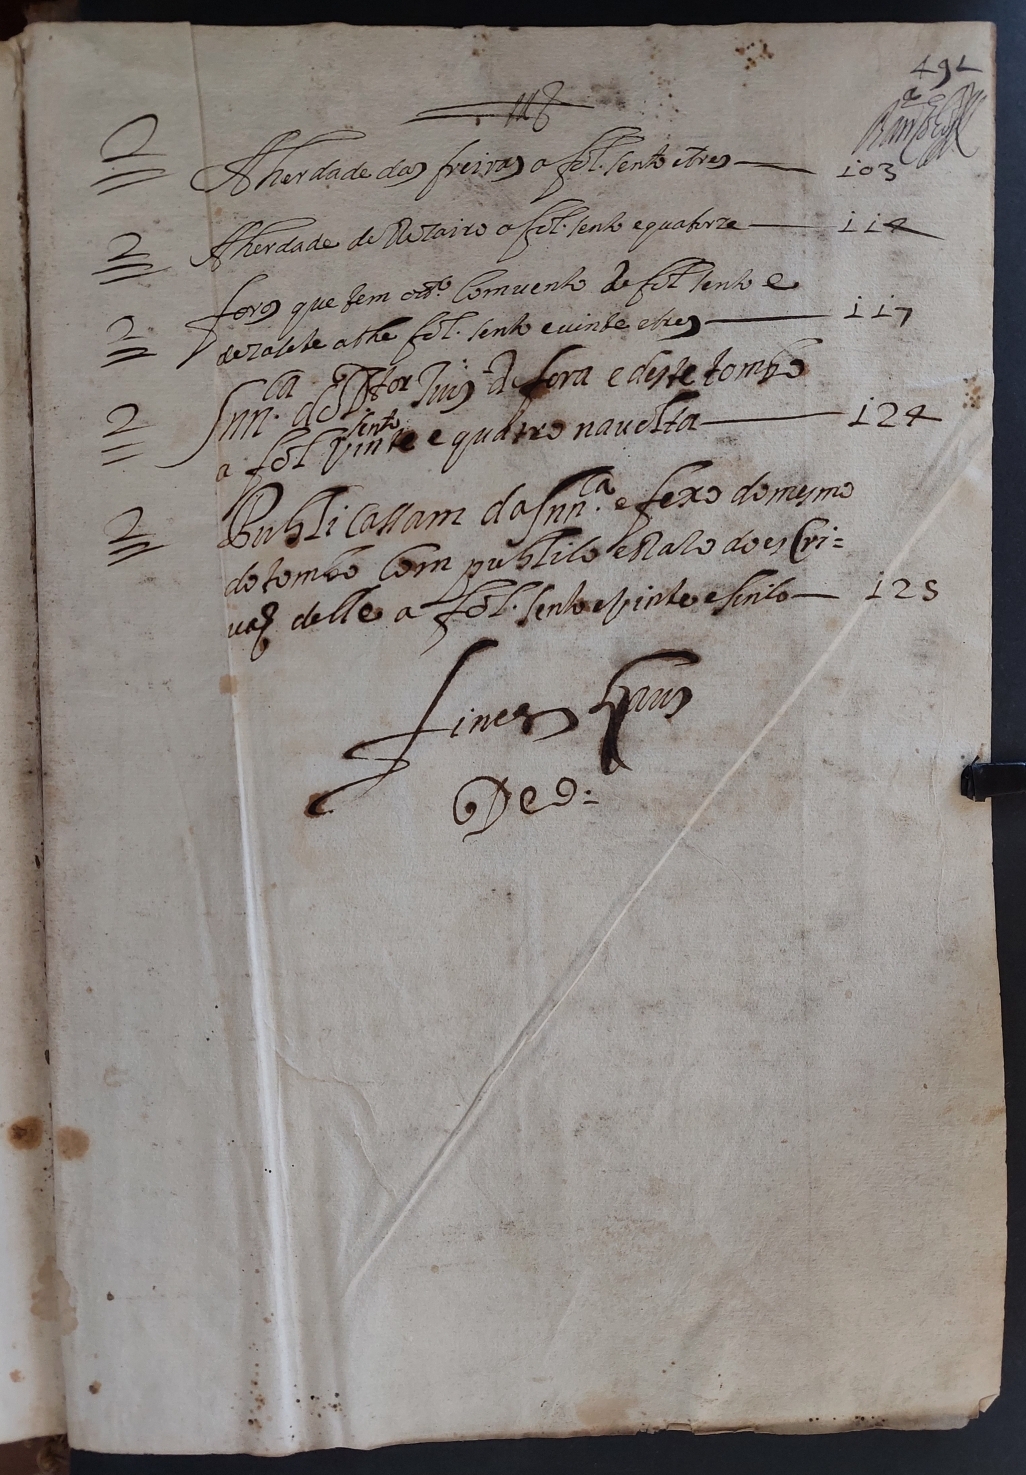 491
118
2 A herdade das freiras a fol. sento e tres — 103
2 A herdade de Netairo a fol. sento e quatorze — 114
foros que tem o dto. Comvento de fol sento e
2 dezasete athe fol. sento e vinte e tres — 117
2 Snnca. do Dtor Juis de fora e deste tombo
a fol sento vinte e quatro na volta — 124
2 Publicassam da Snnca. e fexo do mesmo
do tombo Com publico e Razo do escri=
vaõ delle a fol. sento e vinte e sinco — 125
finis Laus
Deo: